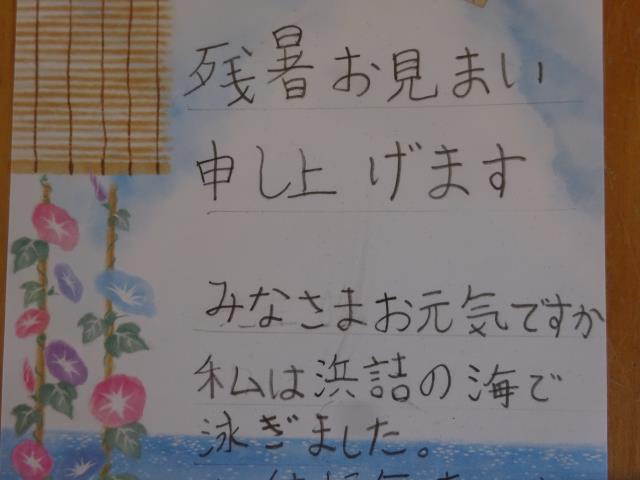 残暑お見まい
申し上げます
みなさまお元気ですか
私は浜詰の海で
泳ぎました。